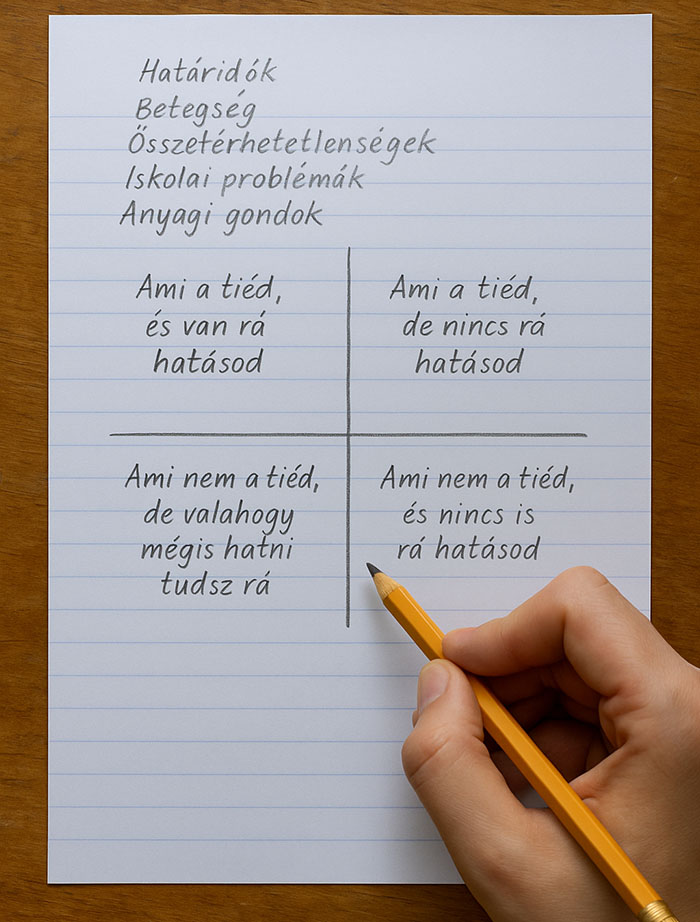 Határidók
Betegség
Összetérhetetlenségek
Iskolai problémák
Anyagi gondok
Ami a tiéd,
és van rá
hatásod
Ami a tiéd,
de nincs rá
hatásod
Ami nem a tiéd,
de valahogy
mégis hatni
tudsz rá
Ami nem a tiéd,
és nincs is
rá hatásod